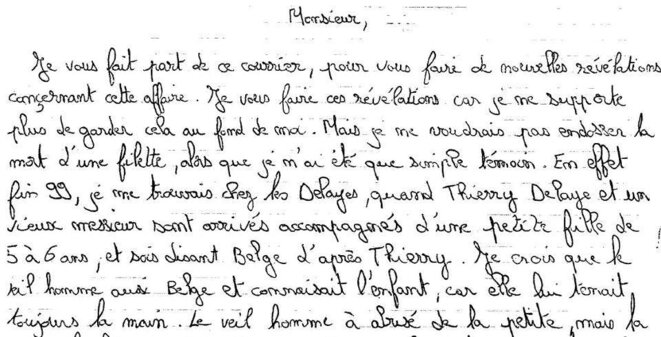 Monsieur,
Je vous fait part de ce courrier, pour vous faire de nouvelles révélations
conçernant cette affaire. Je vous faire ces révélations car je ne supporte
plus de garder cela au fond de moi. Mais je ne voudrais pas endosser la
mort d'une filette, alors que je n'ai été que simple témoin. En effet
fin 99, je me trouvais chez les Delayes, quand Thierry Delaye et un
vieux messieur sont arrivés accompagnés d'une petite fille de
5 à 6 ans, et sois disant Belge d'après Thierry. Je crois que le
homme aussi Belge et connaisait l'enfant, car elle lui tenait
toujours la main. Le veil homme à abusé de la petite, mais la